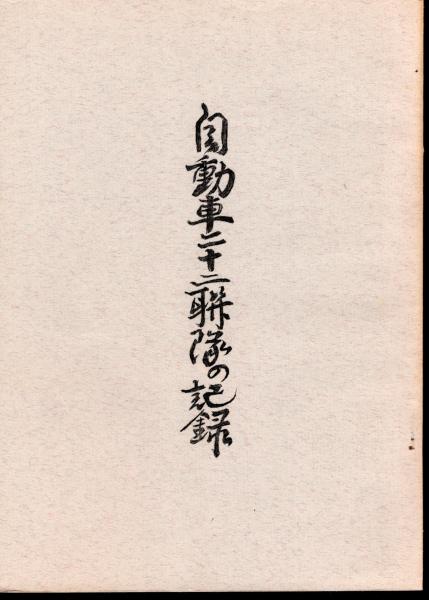 自動車二十二聯隊の記録